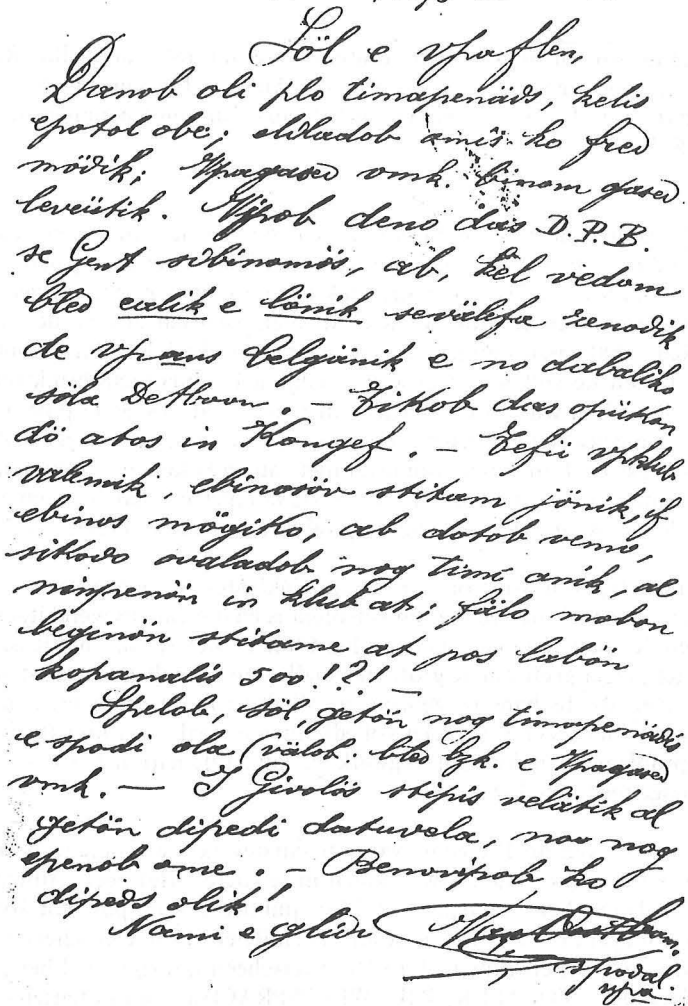 Söl e vpaflen,
Danob oli plo timapenäds, kelis
epotol obe; eliladob omis ko fred
mödik; Vpagased vmk. binom gased
leveütik. Vipob deno das D.P.B.
se Gent sibinomös, ab, kel vedom
bled calik e lönik sevälefa zenodik
de vpans belgänik e no dabaliko
söla . — Tikob das opükon
dö atos in Kongef. — Tefü vpklub
valemik, ebinosöv stitam jönik, if
ebinos mögiko, ab dotob vemo,
sikodo ovaladob nog timi anik, al
ninpenön in klub at; fälo mobon
beginön stitame at pos labön
kopanalis 500!?! —
Spelob, söl, getön nog timapenädis
e spodi ola (välob. bled bzk. e Vpagased
vmk. — I Givolös stipis velätik al
getön dipedi datuvela, no nog
epenob ome. — Benovipob ko
dipeds olik!
Nami e glidi
spodal.
vpa